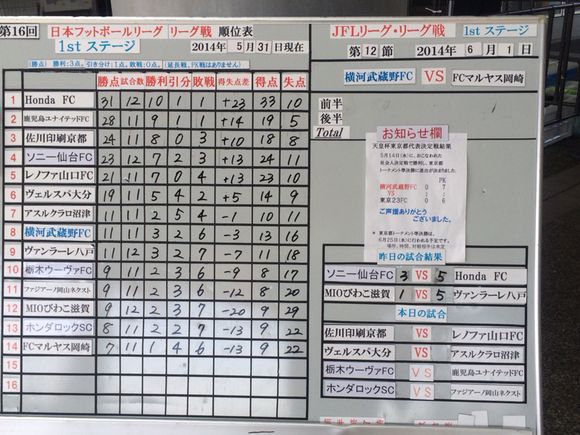 第16回 日本フットボールリーグ リーグ戦 順位表
1stステージ 2014年5月31日現在
(勝点) 勝利:3点、引き分け:1点、敗戦:0点、(延長戦、PK戦はありません)
勝点 試合数 勝利 引分 敗戦 得失点差 得点 失点
1 Honda FC 31 12 10 1 1 +23 33 10
2 鹿児島ユナイテッドFC 28 11 9 1 1 +14 19 5
3 佐川印刷京都 24 11 8 3 +10 18 8
4 ソニー仙台FC 23 12 7 2 3 +13 24 11
5 レノファ山口FC 21 11 7 0 4 +13 23 10
6 ヴェルスパ大分 19 11 5 4 2 +5 14 9
7 アスルクラロ沼津 11 11 2 5 4 -1 10 11
8 横河武蔵野FC 11 11 3 2 6 -3 13 16
9 ヴァンラーレ八戸 11 11 3 2 6 -7 11 18
10 栃木ウーヴァFC 9 11 2 3 6 -8 17
11 ファジアーノ岡山ネクスト 9 11 2 3 6 -12 8 20
12 MIOびわこ滋賀 9 12 2 3 7 -20 9 29
13 ホンダロックSC 8 11 2 2 7 -13 9 22
14 FCマルヤス岡崎 7 11 1 4 6 -13 9 22
15
16
JFLリーグ・リーグ戦 1stステージ
第12節 2014年6月1日
横河武蔵野FC VS FCマルヤス岡崎
前半
後半
Total
お知らせ欄
天皇杯東京都代表決定戦結果
5月14日(水)に、おこなわれた
社会人決定戦で勝利し、東京都
トーナメント準決勝に進出が決まりました。
PK
横河武蔵野FC 0 7
VS : :
東京23FC 0 6
ご声援ありがとう
ございました。
* 東京都トーナメント準決勝は、
6月25日(水)に行われる予定です。
場所、時間、対戦相手は未定
昨日の試合結果
ソニー仙台FC 3 VS 5 Honda FC
MIOびわこ滋賀 1 VS 5 ヴァンラーレ八戸
本日の試合
佐川印刷京都 VS レノファ山口FC
ヴェルスパ大分 VS アスルクラロ沼津
栃木ウーヴァFC VS ファジアーノ岡山ネクスト
ホンダロックSC VS 鹿児島ユナイテッドFC